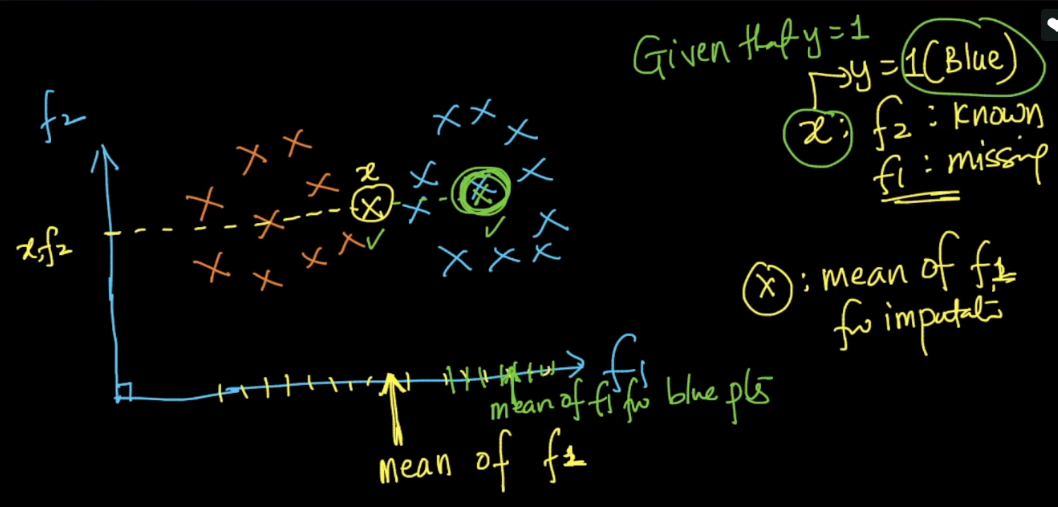 Given that y = 1
y = 1 (Blue)
f2
x; f2 : known
f1 : missing
x
x,f2
x : mean of f1
for imputati
f1
mean of f1 for blue pts
mean of f1